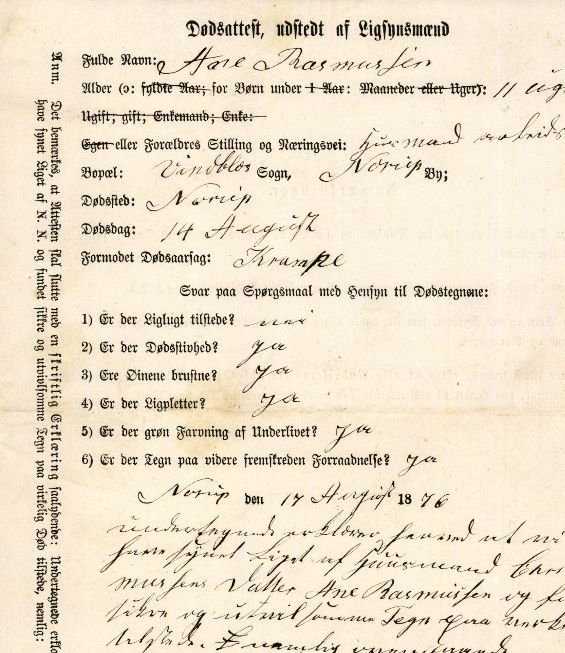 Dødsattest, udstedt af Ligsynsmænd
Fulde Navn: Ane Rasmussen
Alder (ɔ: fyldte Aar; for Børn under 1 Aar: Maaneder eller Uger): 11 Ug
Ugift; gift; Enkemand; Enke:
Egen eller Forældres Stilling og Næringsvei: Husmand arbeids
Bopæl: Vindblæs Sogn, Norup By;
Dødsted: Norup
Dødsdag: 14 August
Formodet Dødsaarsag: Krampe
Svar paa Spørgsmaal med Hensyn til Dødstegnene:
1) Er der Liglugt tilstede? nei
2) Er der Dødsstivhed? ja
3) Ere Øinene brustne? ja
4) Er der Ligpletter? ja
5) Er der grøn Farvning af Underlivet? ja
6) Er der Tegn paa videre fremskreden Forraadnelse? ja
Norup den 17 August 1876
undertegnede erklærer herved at vi
have synet Liget af Huusmand Chri
mussens Datter Ane Rasmussen og f
sikre og utvivlsomme Tegn paa verk
tilstede. nemlig
Anm. Det bemærkes, at Attesten skal slutte med en skriftlig Erklæring saalydende: Undertegnede erklæ
have synet Liget af N. N. og fundet sikkre og utvivlsomme Tegn paa virkelig Død tilstede, nemlig: